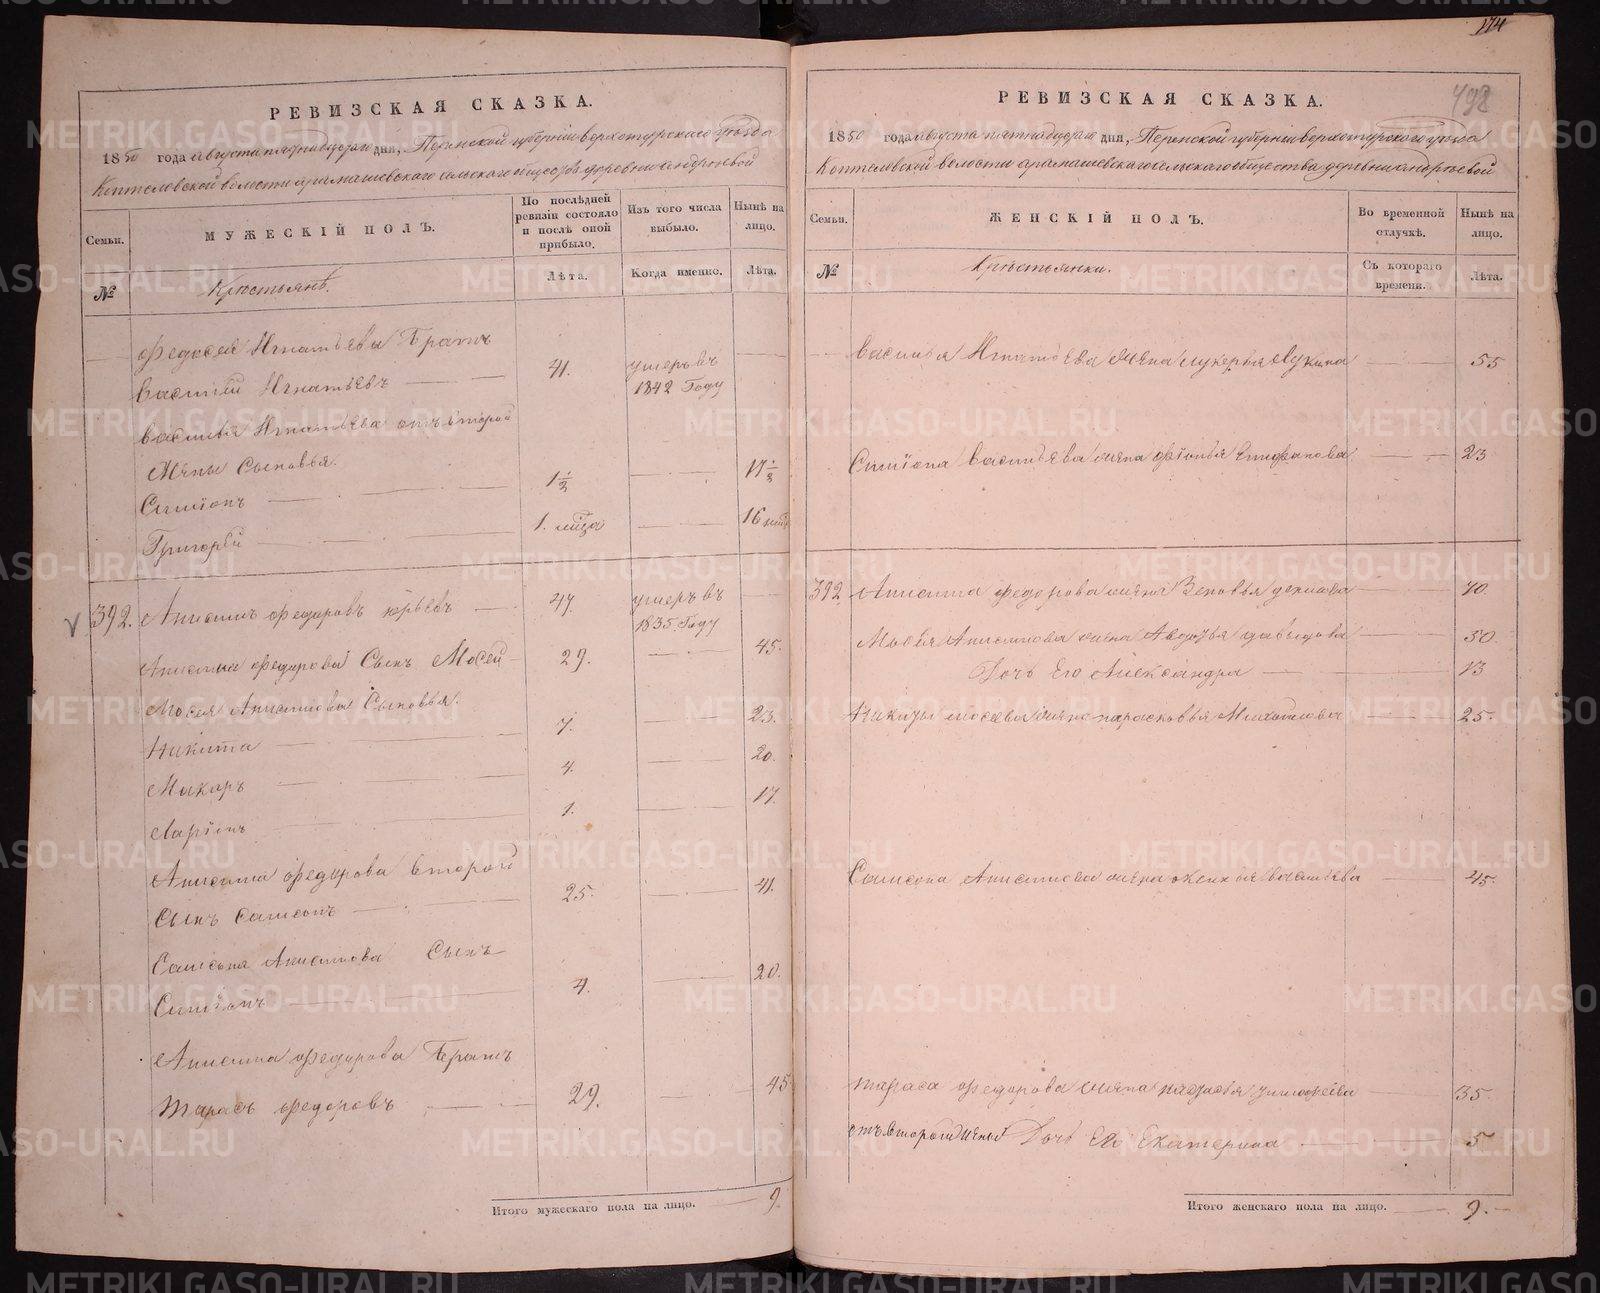 174
498
РЕВИЗСКАЯ СКАЗКА.
1850 года августа пятнадцатаго дня, Пермской губернии верхотурскаго уѣзда
Коптеловской волости арамашевскаго сельскаго общества деревни андрьевой
Семьи.
МУЖЕСКІЙ ПОЛЪ.
По послѣдней ревизіи состояло и послѣ оной прибыло.
Изъ того числа выбыло.
Нынѣ на лицо.
№
Крестьянѣ.
Лѣта.
Когда именно.
Лѣта.
федосея Игнатьева Братъ
Василій Игнатьевъ 41. умеръ въ 1842 Году
василья Игнатьева отъ второй
Жены Сыновья.
Симіонъ 1 1/2 17 1/2
Григорей 1. мѣца 16
392. Анисимъ федоровъ юрьевъ 47. умеръ въ 1835 Году
Анисима федорова Сынъ Мосей 29. 45.
Мосея Анисимова Сыновья.
Никита 7. 23.
Макаръ 4. 20.
Ларіонъ 1. 17.
Анисима федорова второй
Сынъ Самсонъ 25. 41.
Самсона Анисимова Сынъ
Симіонъ 4. 20.
Анисима федорова Братъ
тарасъ федоровъ 29. 45
Итого мужескаго пола на лицо. 9.
РЕВИЗСКАЯ СКАЗКА.
1850 года августа пятнадцатаго дня, Пермской губернии верхотурскаго уѣзда
Коптеловской волости арамашевскаго сельскаго общества деревни андрьевой
Семьи.
ЖЕНСКІЙ ПОЛЪ.
Во временной отлучкѣ.
Нынѣ на лицо.
№
Крестьянки.
Съ котораго времени.
Лѣта.
василья Игнатьева жена лукерья Лукина 55
Симіона васильева жена фіонья Епифанова 23
392. Анисима федорова жена Зеновья денисова 70.
Мосея Анисимова жена Авдотья давыдова 50.
Дочь Его Александра 13
Никиты мосеева жена парасковья Михайлова 25.
Самсона Анисимова жена оксинья васильева 45.
тараса федорова жена настасья тимофеева 35.
отъ второй жены Дочь Его Екатерина 5
Итого женскаго пола на лицо. 9.
METRIKI.GASO-URAL.RU